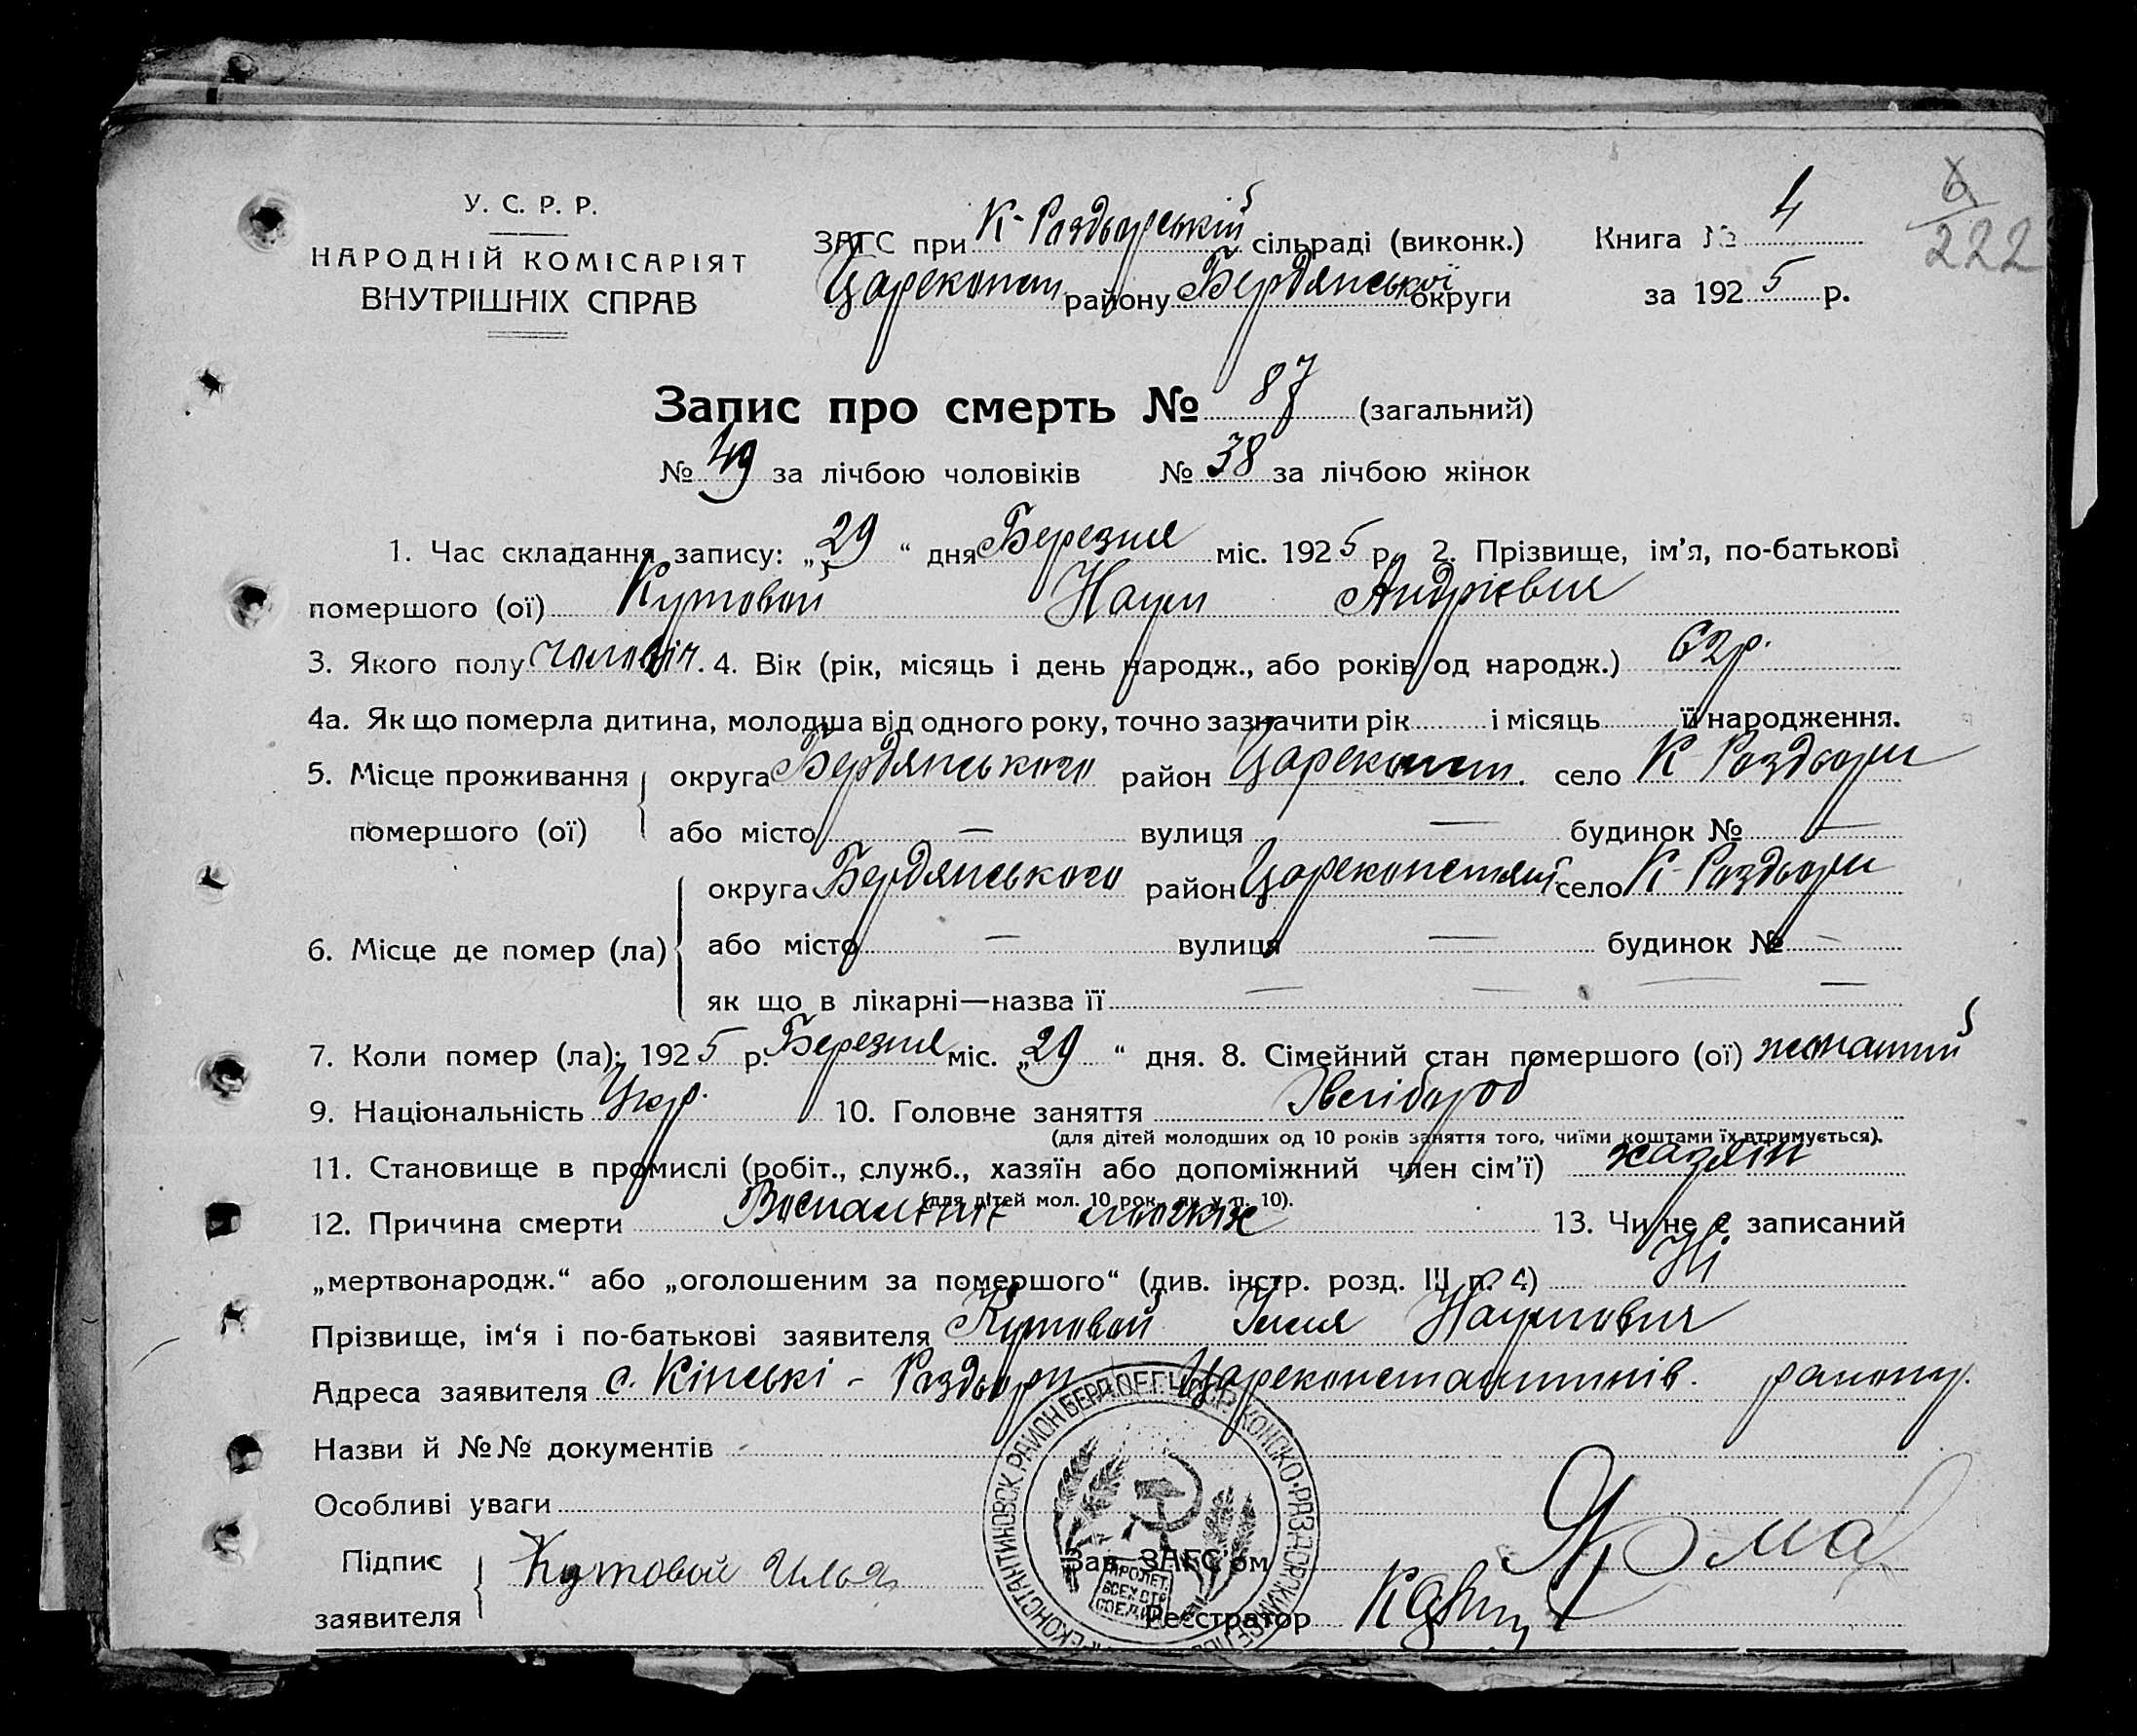 У. С. Р. Р.
НАРОДНІЙ КОМІСАРІЯТ
ВНУТРІШНІХ СПРАВ
ЗАГС при К-Роздорській сільраді (виконк.)
Цареконст району Бердянської округи
Книга № 4
за 1925 р.
6
222
Запис про смерть № 87 (загальний)
№ 49 за лічбою чоловіків № 38 за лічбою жінок
1. Час складання запису: „29“ дня Березня міс. 1925 р. 2. Прізвище, ім’я, по-батькові
помершого (ої) Кутовой Наум Андрієвич
3. Якого полу чоловіч. 4. Вік (рік, місяць і день народж., або років од народж.) 62 р.
4а. Як що померла дитина, молодша від одного року, точно зазначити рік і місяць її народження.
5. Місце проживання округа Бердянського район Цареконст. село К-Роздори
помершого (ої) або місто — вулиця — будинок № —
округа Бердянського район Цареконстян село К-Роздори
6. Місце де помер (ла) або місто — вулиця — будинок № —
як що в лікарні—назва її — — — —
7. Коли помер (ла): 1925 р. Березня міс. „29“ дня. 8. Сімейний стан помершого (ої) жонатий
9. Національність Укр. 10. Головне заняття
(для дітей молодших од 10 років заняття того, чиїми коштами їх втримується).
11. Становище в промислі (робіт., служб., хазяїн або допоміжний член сім’ї) хазяїн
(для дітей мол. 10 рок. як у п. 10).
12. Причина смерти 13. Чи не є записаний
„мертвонародж.“ або „оголошеним за помершого“ (див. інстр. розд. III п. 4) Ні
Прізвище, ім‘я і по-батькові заявителя Кутовой Ілля Наумович
Адреса заявителя с. Кінські - Роздори Цареконстантинів. району.
Назви й №№ документів
Особливі уваги
Підпис заявителя Кутовой Илья
Зав. ЗАГС’ом
Реєстратор
ПРОЛЕТ.
ВСЕХ СТР.
СОЕД.